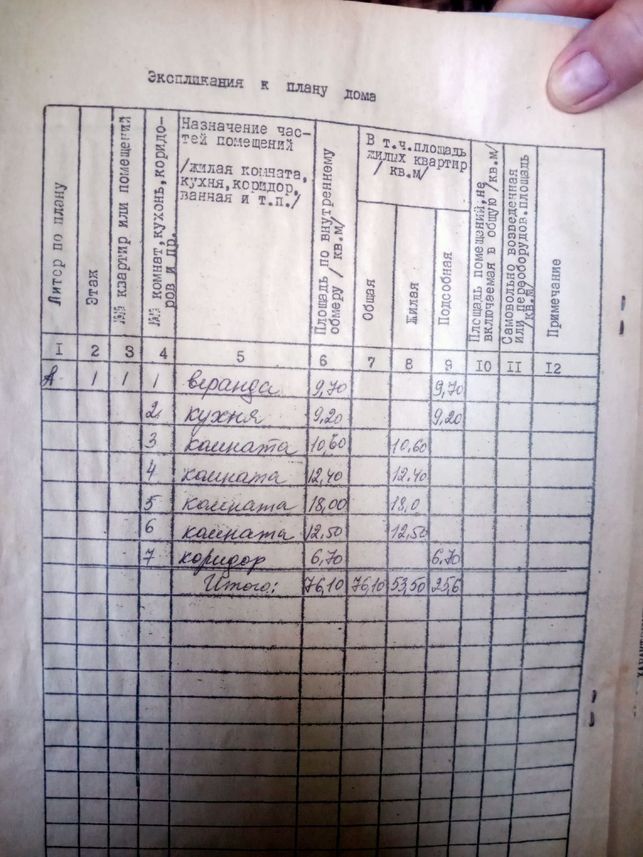 Экспликания к плану дома
Литер по плану
Этаж
№№ квартир или помещений
№№ комнат,кухонь,коридо-
ров и др.
Назначение час-
тей помещений
/жилая комната,
кухня,коридор,
ванная и т.п./
Площадь по внутреннему
обмеру / кв.м/
В т.ч.площадь
жилых квартир
/ кв.м/
Общая
Жилая
Подсобная
Площадь помещений,не
включаемая в общую /кв.м/
Самовольно возведенная
или переоборудов.площадь
/кв.м/
Примечание
I 2 3 4 5 6 7 8 9 10 II I2
А 1 1 1 веранда 9,70 9,70
2 кухня 9,20 9,20
3 комната 10,60 10,60
4 комната 12,40 12.40
5 комната 18,00 18,0
6 комната 12,50 12,50
7 коридор 6,70 6,70
Итого: 76,10 76,10 53,50 25,6